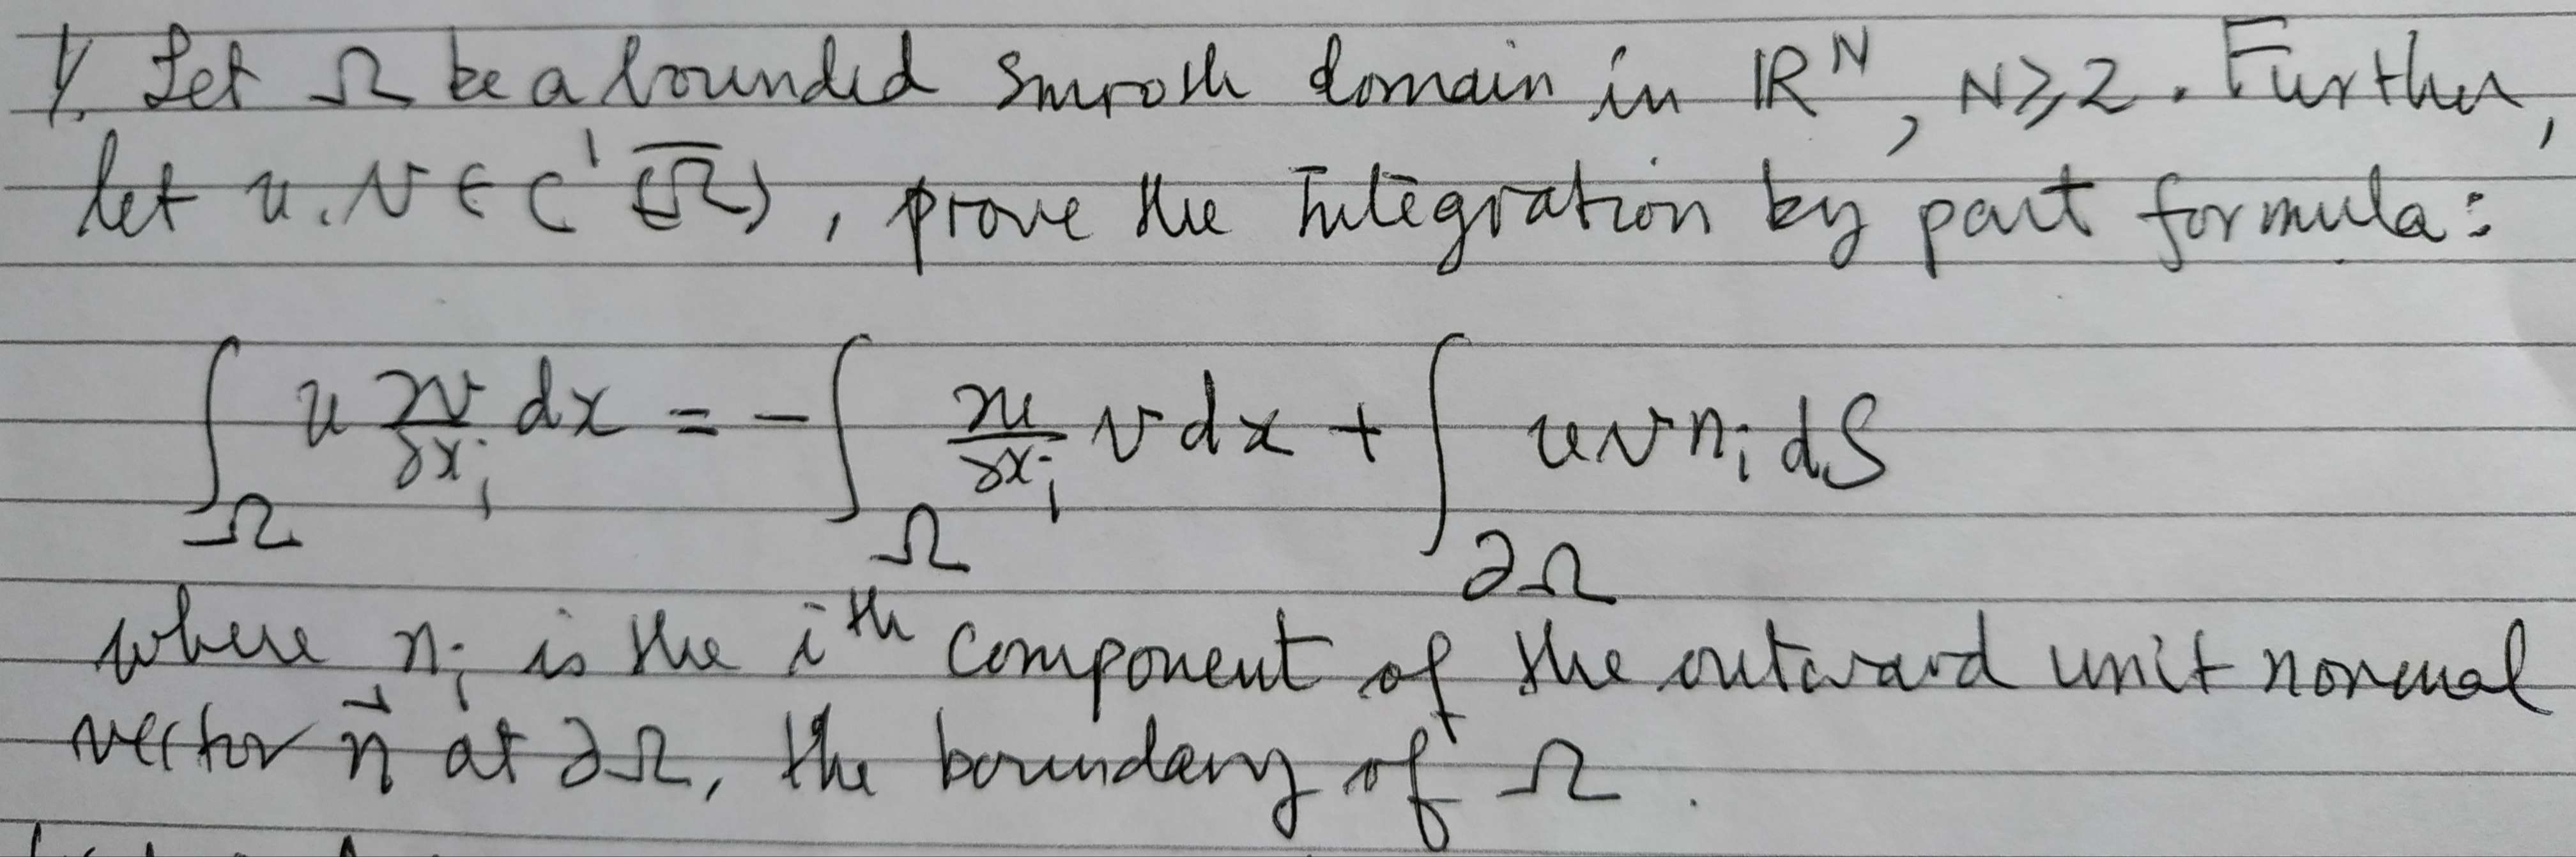 1. Let Ω be a bounded smooth domain in ℝᴺ, N ≥ 2. Further,
let u, v ∈ C¹(Ω̅), prove the Integration by part formula:
∫_Ω u ∂v/∂xᵢ dx = - ∫_Ω ∂u/∂xᵢ v dx + ∫_∂Ω u v nᵢ dS
where nᵢ is the iᵗʰ component of the outward unit normal
vector n⃗ at ∂Ω, the boundary of Ω.